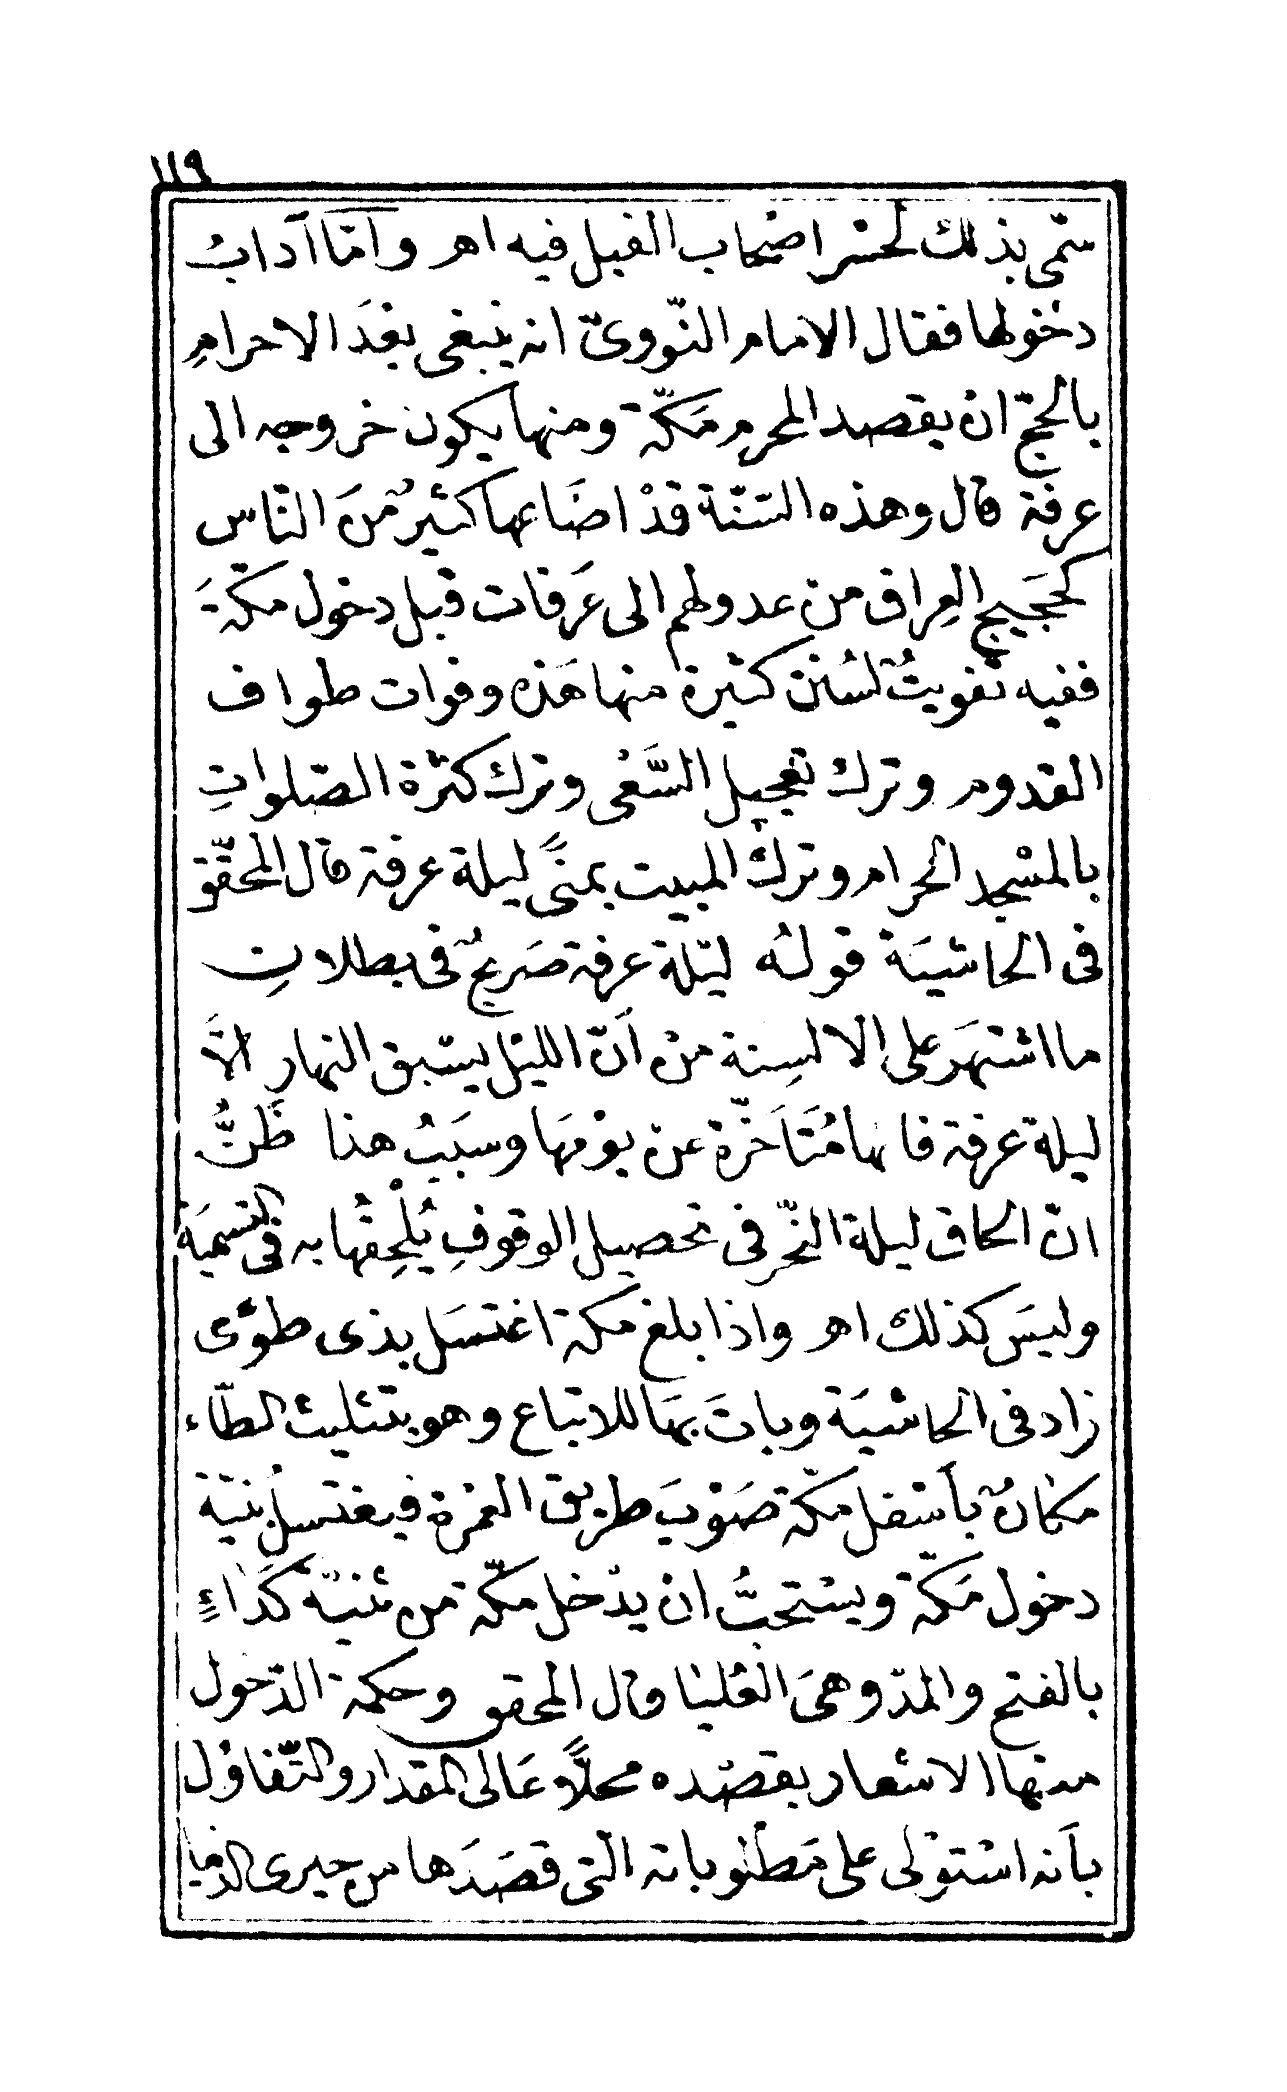 ١١٩
سمّى بذلك لحسر اصحاب الفيل فيه اهـ وامّا آداب
دخولها فقال الامام النّووىّ انه ينبغى بعْدَ الاحرامِ
بالحجّ انْ يقصد المحرم مَكّة ومنها يكون خروجه الى
عرفة قال وهذه السّنّة قدْ اضَاعها كثيرٌ منَ النّاس
كحَجيج العِراق من عدولهم الى عَرَفات قبْل دخول مكّةَ
ففيه تفويتٌ لسُنن كثيرة منها هَذه وفوات طواف
القدوم وترك تعْجيل السَّعْى وترك كثْرة الصّلواتِ
بالمسْجد الحرام وترك المبيت بمنًى ليلة عرفة قال المحقّق
فى الحاشيَة قولُه ليْلة عرفة صَريحٌ فى بطلانِ
ما اشتهَر على الالسِنة منْ اَنّ اللّيْل يسْبق النهار الاَّ
ليلة عرفة فانها مُتَاَخّرة عن يوْمهَا وسبَبُ هذا ظَنُّ
انّ الحاق ليلة النّحْر فى تحصيل الوقوفِ يُلْحِقُها به فى التسميَة
وليسَ كذلك اهـ واذا بلغ مكة اغتسَل بذى طوًى
زاد فى الحاشيَة وباتَ بهَا للاتباع وهو بتثليث الطّاء
مكانٌ بأسْفل مكّة صَوْبَ طريق العمْرة فيغتسلُ بنيّة
دخول مَكّة ويسْتحبُّ انْ يدْخل مكّة من ثنيّة كَدَاءٍ
بالفتح والمدّ وهىَ العُليَا وقال المحقق وحكمة الدّخول
منها الاشعار بقصْده محلاًّ عَالى المقدار والتّفاؤل
بأنه اسْتوْلى على مَطْلوباته الّتى قصَدَها من خيرى الدّنيا